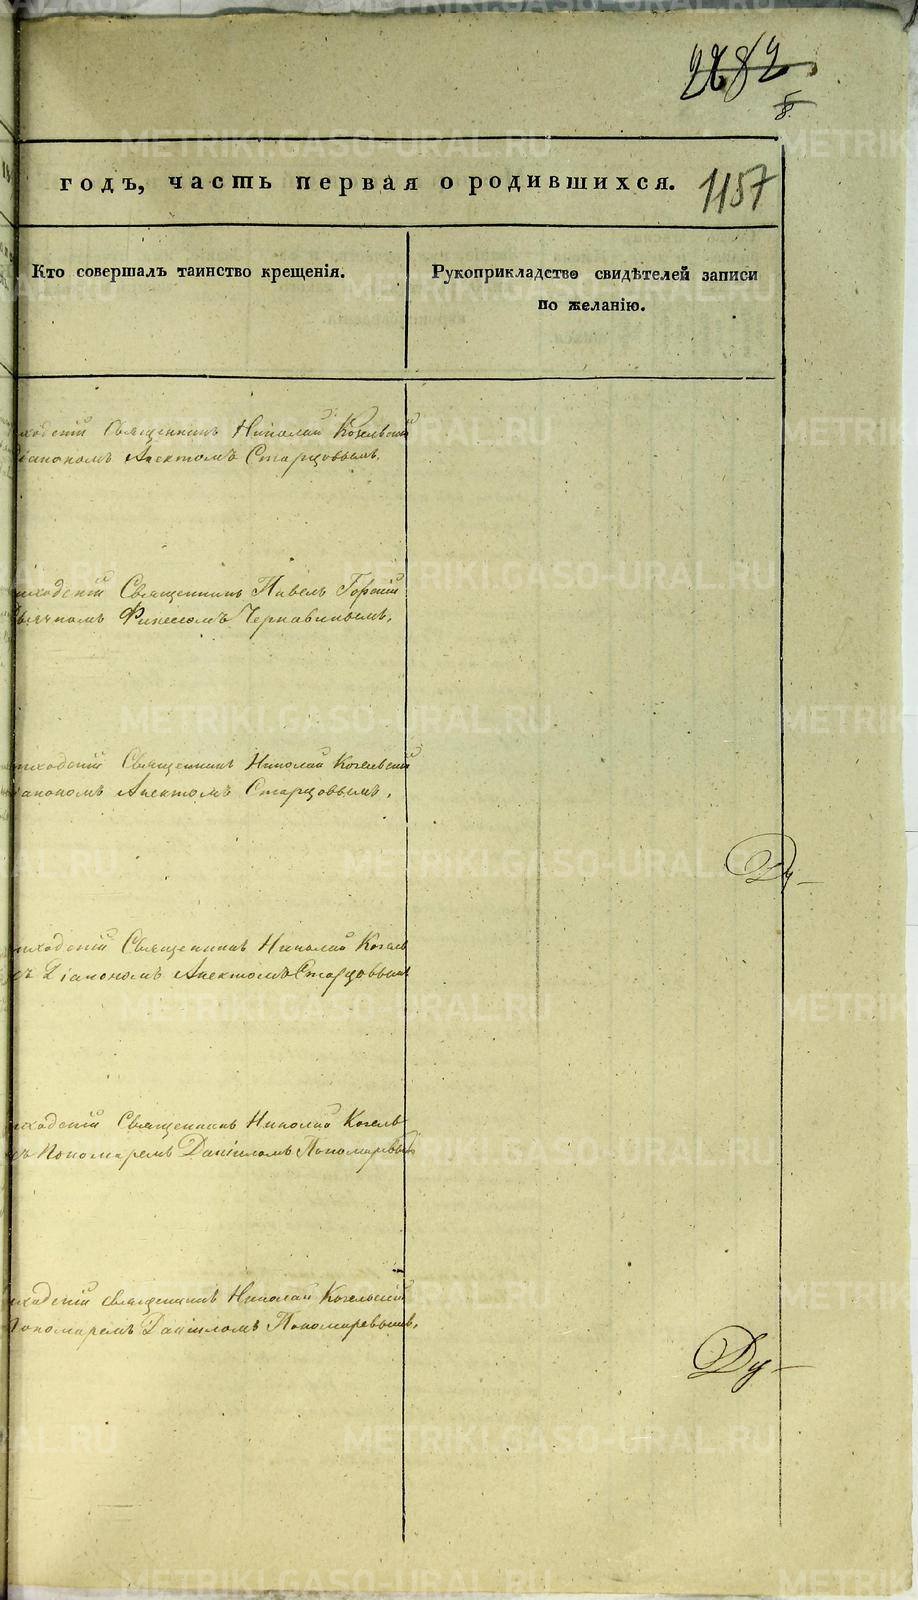 2682
годъ, часть первая о родившихся. 1157
Кто совершалъ таинство крещенія.
Рукоприкладство свидѣтелей записи
по желанію.
ходскій Священникъ Николай Когельскій
Діакономъ Аректомъ Старцовымъ.
иходскій Священникъ Павелъ Горскій
Дьячкомъ Финесомъ Чернавинымъ.
иходскій Священникъ Николай Когельскій
Діакономъ Аректомъ Старцовымъ.
Ду
иходскій Священникъ Николай Когель
съ Діакономъ Аректомъ Старцовымъ
иходскій Священникъ Николай Когель
съ Пономаремъ Даніиломъ Пономаревым
иходскій священникъ Николай Когельскій
Пономаремъ Даніиломъ Пономаревымъ.
Ду
METRIKI.GASO-URAL.RU